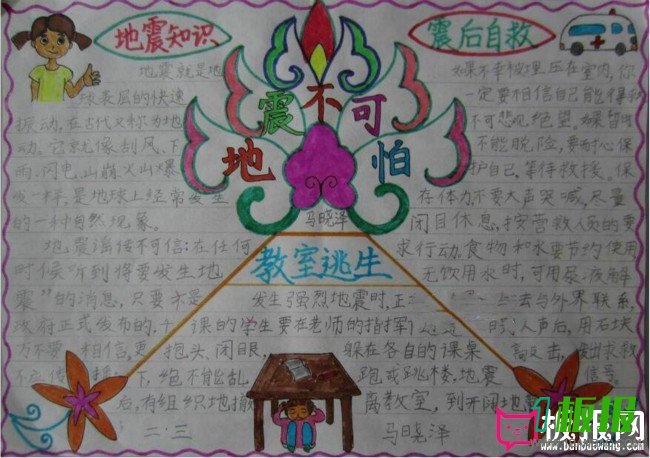 地震知识
地震就是地
球表层的快速
振动,在古代又称为地
动。它就像刮风、下
雨、闪电、山崩、火山爆
发一样,是地球上经常发生
的一种自然现象。
地震谣传不可信:在任何
时候听到将要发生地
震”的消息,只要不是
政府正式发布的,千
万不要相信,更
二·三
地震不可怕
马晓泽
教室逃生
发生强烈地震时,正
课的学生要在老师的指挥
抱头、闭眼,躲在各自的课桌
下,绝不能乱跑或跳楼,地震
后,有组织地撤离教室,到开阔地
马晓泽
震后自救
如果不幸被埋压在室内,你
一定要相信自己能得救
不可悲观绝望。如果暂时
不能脱险,要耐心保
护自己,等待救援。保
存体力,不要大声哭喊,尽量
闭目休息,按营救人员的要
求行动。食物和水要节约使用
无饮用水时,可用尿液解
去与外界联系,
人声后,用石块
击,发出求救
信号。
板报网
www.banbaowang.com